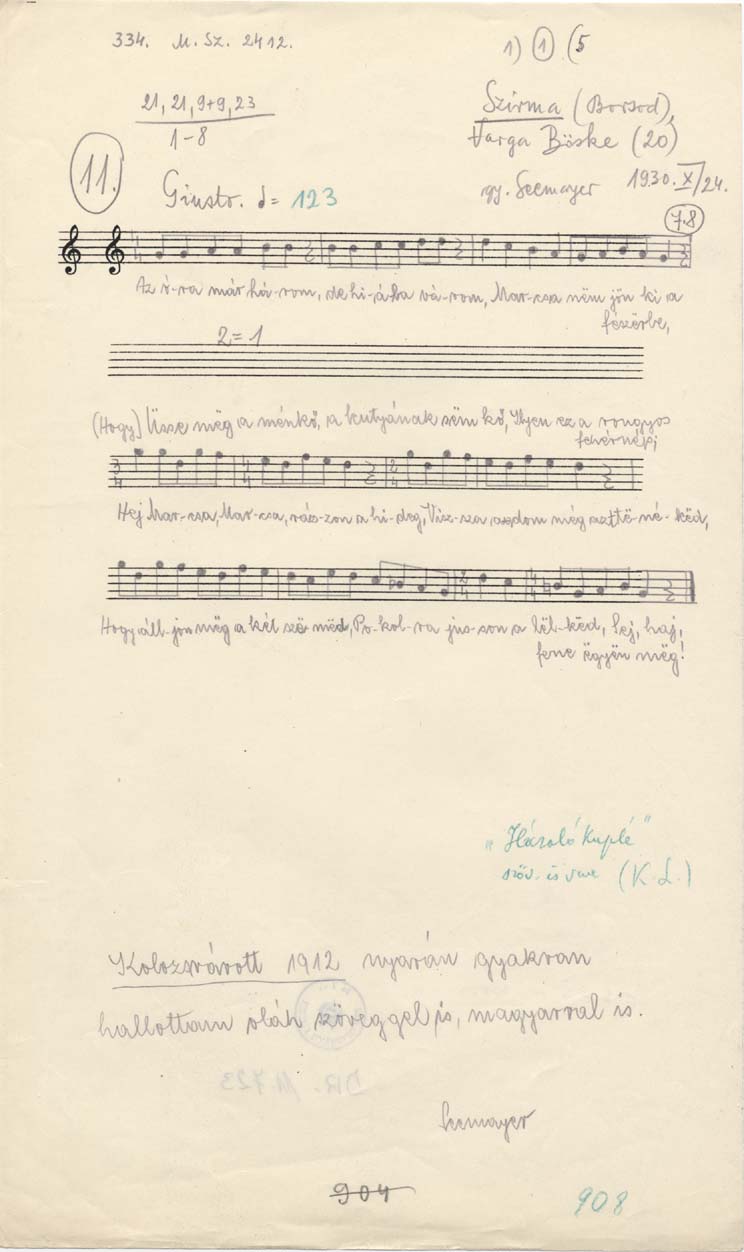 334. M. Sz. 2412.
1) 1 (5
21, 21, 9+9, 23
1-8
Szirma (Borsod),
Varga Böske (20)
11.
Giusto. = 123
gy. Seemayer 1930. X/24.
7.8
Az ó-ra már há-rom, de hi-ába vá-rom, Mar-csa nëm jön ki a
fészërbe,
2=1
(Hogy) Üsse mëg a ménkő, a kutyának sëm kő, Ilyen ez a rongyos
fehérnép;
3/4 4/4 2/4
Hej Mar-csa, Mar-csa, ráz-zon a hi-deg, Visz-sza adom még azt të-né-këd,
2/4 4/4
Hogy áll-jon mëg a két szë mëd, Po-kol-ra jus-son a lël-këd, hej, haj,
fene ëgyën mëg!
"
szöv. és (K. L.)
Kolozsvárott 1912 nyarán gyakran
hallottam oláh szöveggel is, magyarral is.
DR. M. 723
Seemayer
904
908